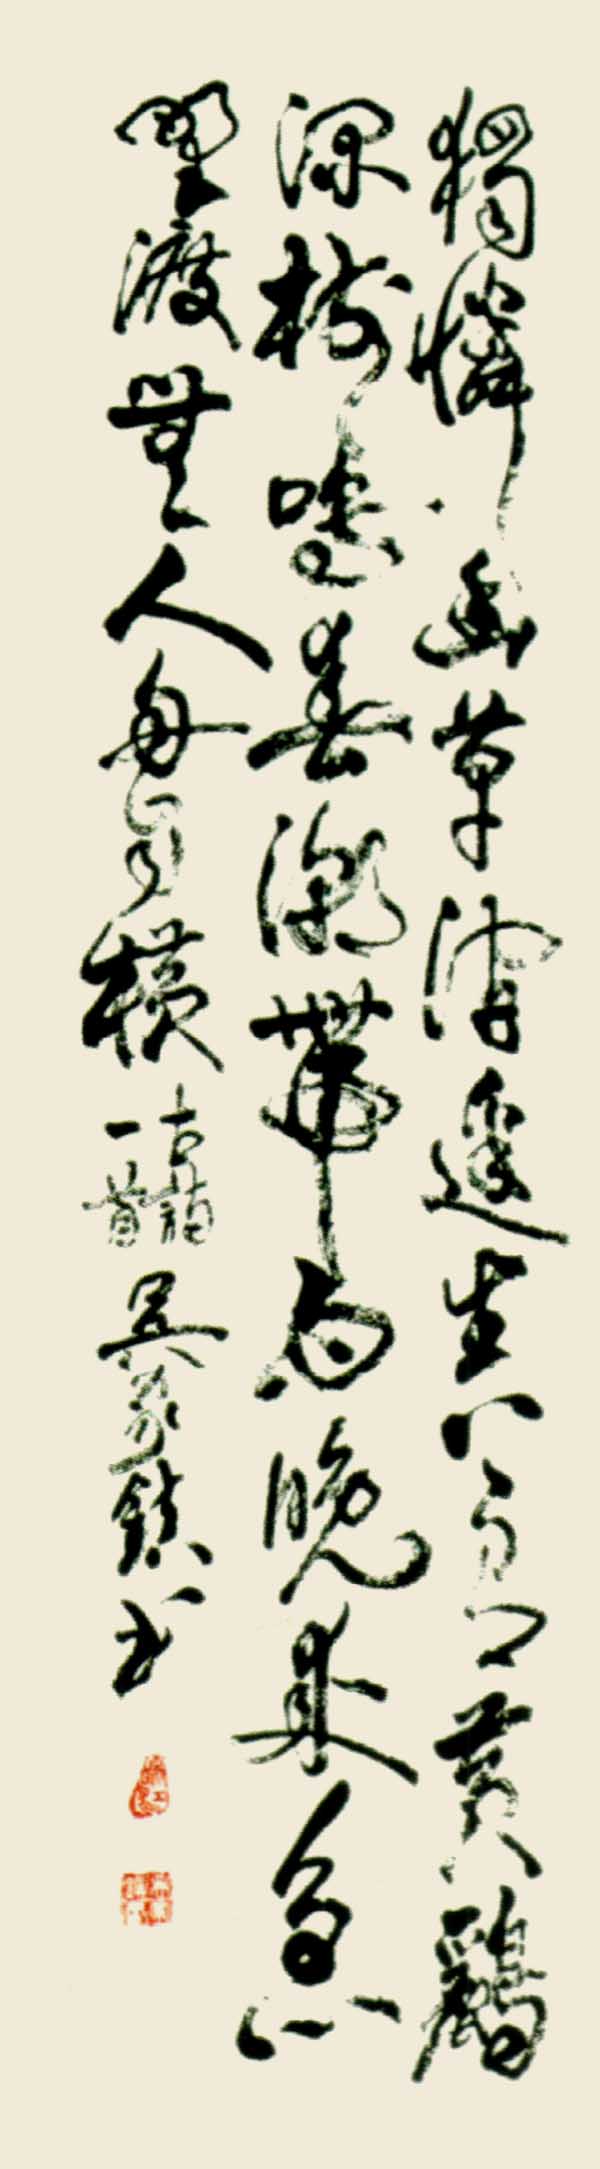 獨憐幽草澗邊生上有黃鸝
深樹鳴春潮帶雨晚來急
野渡無人舟自橫 古詩一首 吳 鎮書